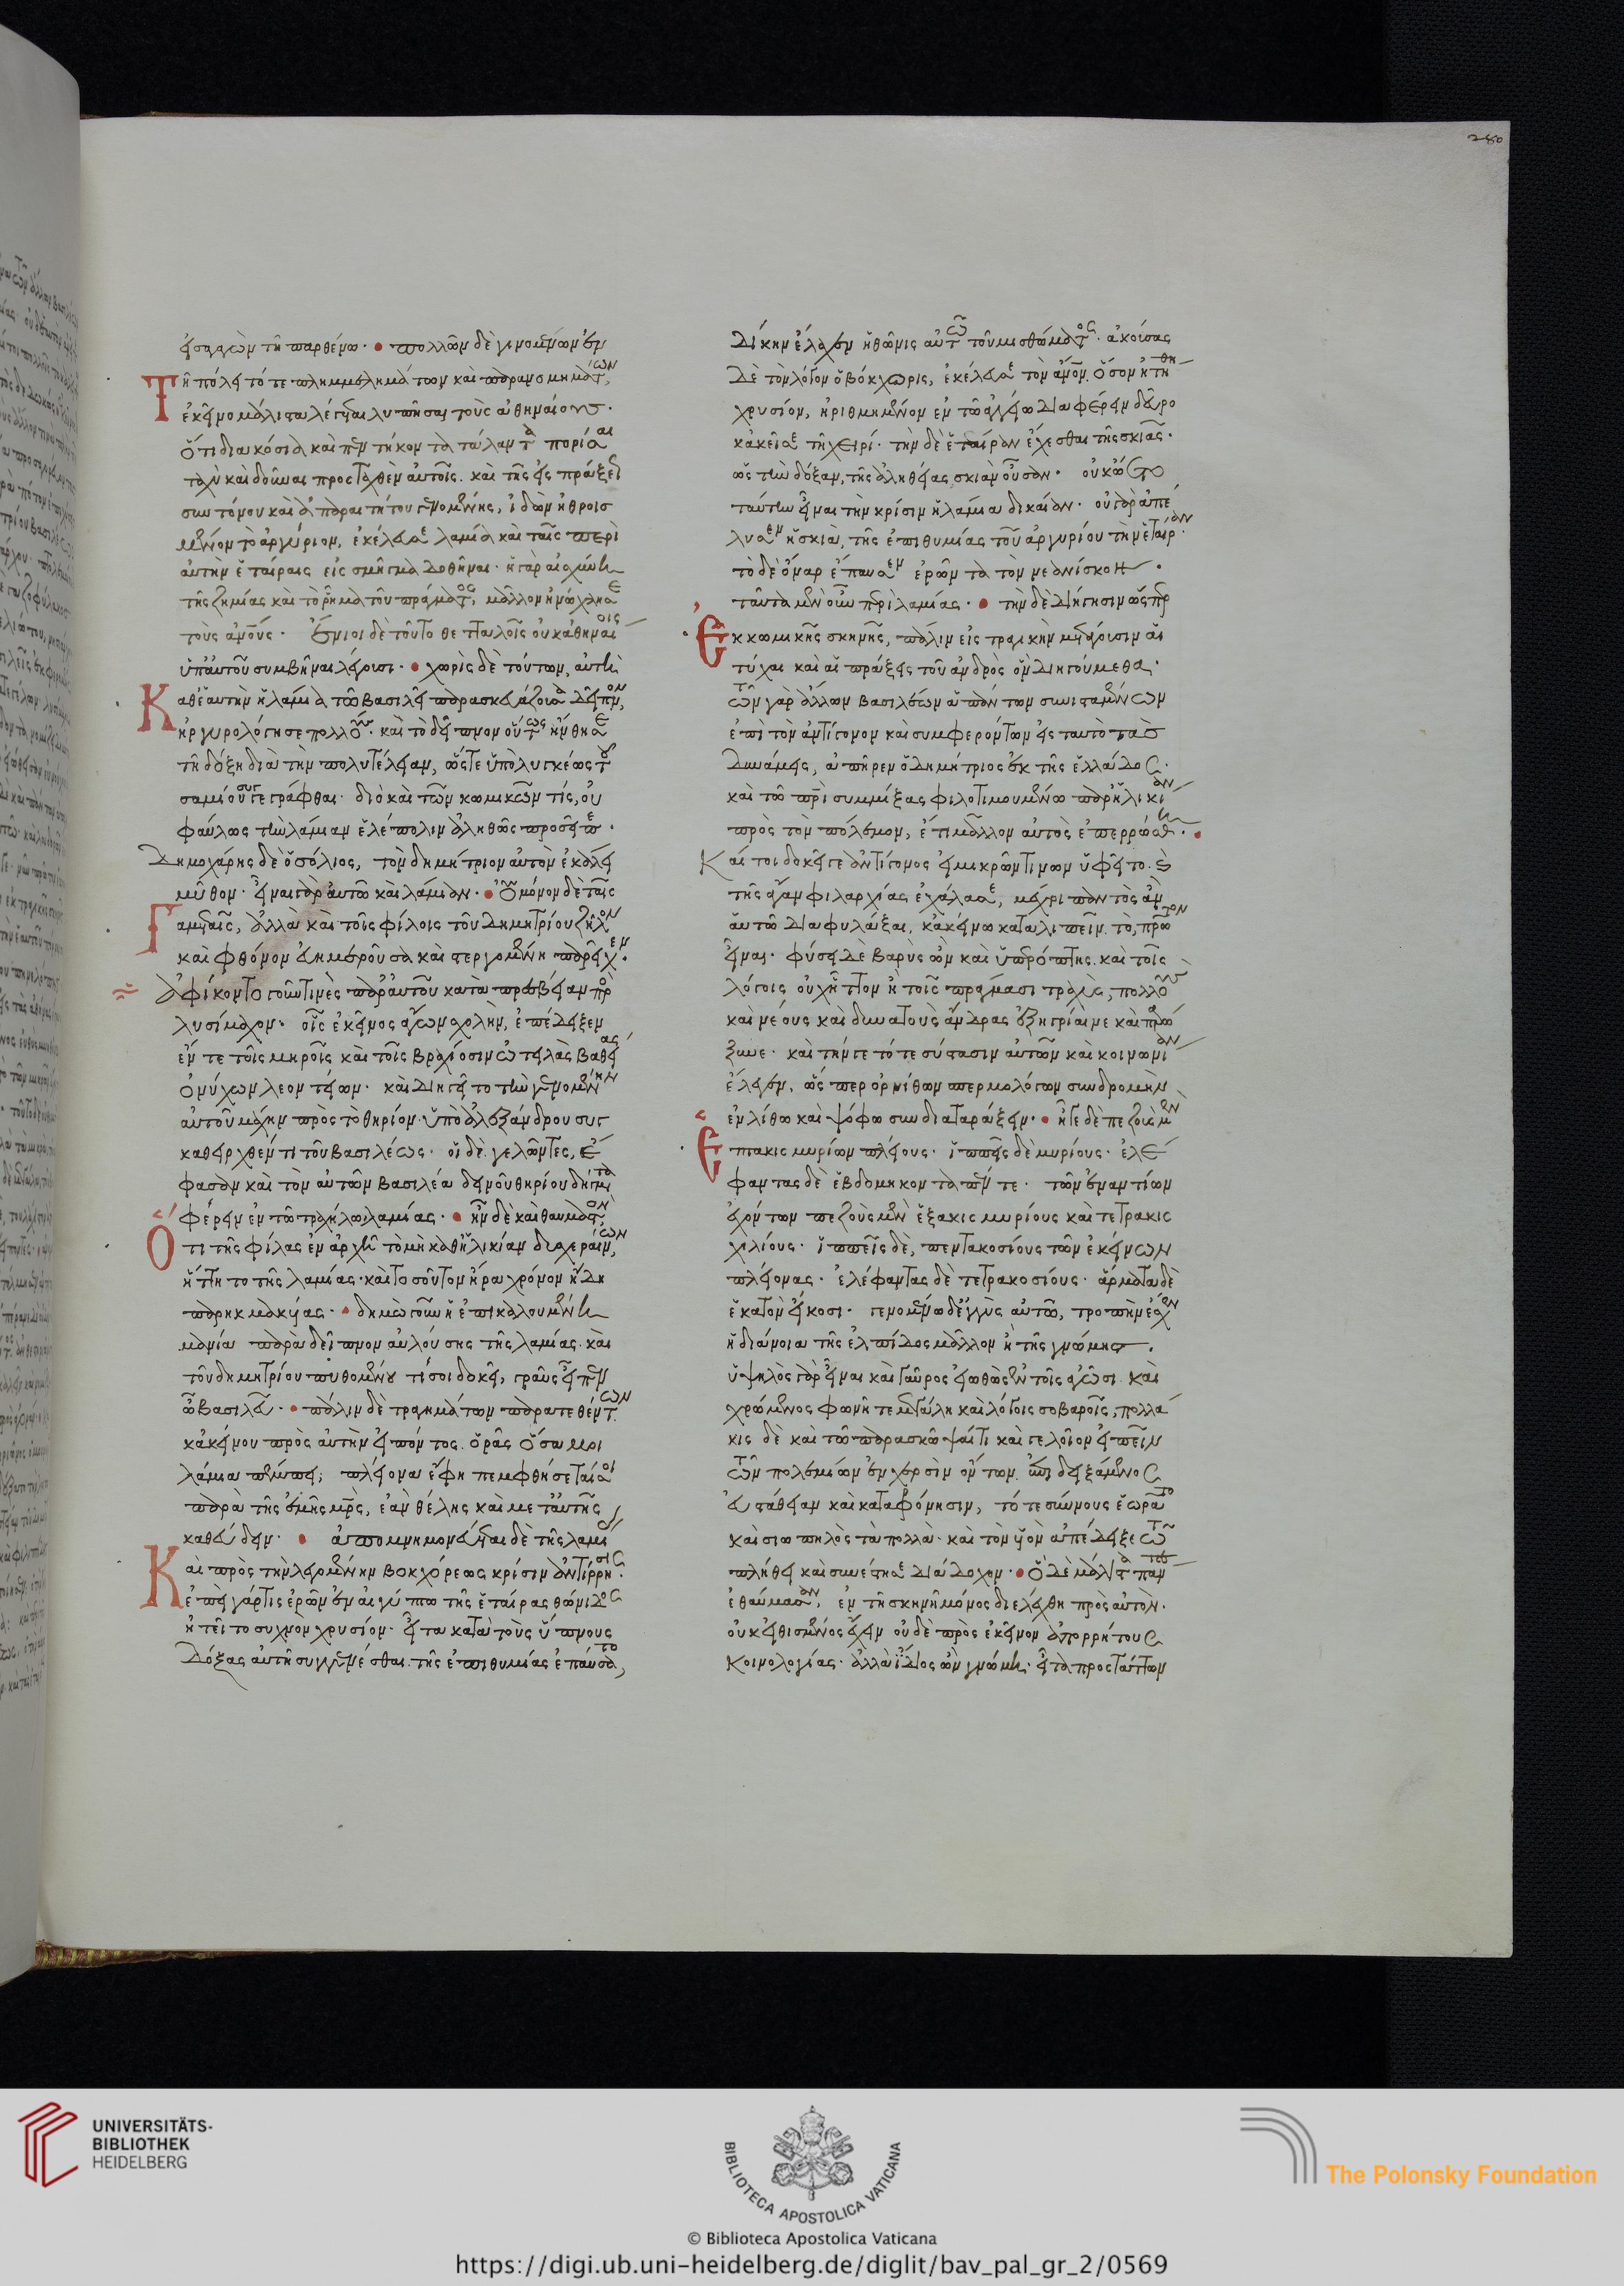 εἰσαγαγὼν τῆ παρθένω· πολλῶν δὲ γενομένων ἐν
Τῆ πόλει τότε πλημμελημάτων καὶ παρανομημάτων,
ἐκεῖνο μάλιστα λέγεται λυπῆσαι τοὺς ἀθηναίους·
ὅτι διακόσια καὶ πεντήκοντα τάλαντα πορίσαι
ταχὺ καὶ δοῦναι προσταχθὲν αὐτοῖς. καὶ τῆς εἰσπράξεως
συντόνου καὶ ἀπαραιτήτου γενομένης, ἰδὼν ἠθροισ
μένον τὸ ἀργύριον, ἐκέλευσε λαμία καὶ ταῖς περὶ
αὐτὴν ἑταίραις εἰς σμῆγμα δοθῆναι· ἡ γὰρ αἰσχύνη
τῆς ζημίας καὶ τὸ ῥῆμα τοῦ πράγματος, μᾶλλον ἠνώχλησε
τοὺς ἀνθρώπους· ἔνιοι δὲ τοῦτο θετταλοῖς οὐκ ἀθηναίοις
ὑπ' αὐτοῦ συμβῆναι λέγουσι· χωρὶς δὲ τούτων, αὐτὴ
Καθ' ἑαυτὴν ἡ λάμια τῶ βασιλεῖ παρασκευάζουσα δεῖπνον,
ἠργυρολόγησε πολλούς· καὶ τὸ δεῖπνον οὕτως ἤνθησε
τῆ δόξη διὰ τὴν πολυτέλειαν, ὥστε ὑπὸ λυγκέως τοῦ
σαμίου συγγεγράφθαι· διὸ καὶ τῶν κωμικῶν τίς, οὐ
φαύλως τὴν λάμιαν ἑλέπολιν ἀληθῶς προσεῖπε·
Δημοχάρης δὲ ὁ σόλιος, τὸν δημήτριον αὐτὸν ἐκάλει
μῦθον· εἶναι γὰρ αὐτῶ καὶ λάμιαν· οὐ μόνον δὲ ταῖς
Γαμεταῖς, ἀλλὰ καὶ τοῖς φίλοις τοῦ δημητρίου ζῆλον
καὶ φθόνον εὐημεροῦσα καὶ στεργομένη παρεῖχεν.
ἀφίκοντο γοῦν τινὲς παρ' αὐτοῦ κατα πρεσβείαν πρὸς
λυσίμαχον· οἷς ἐκεῖνος ἄγων σχολὴν, ἐπέδειξεν
ἔν τε τοῖς μηροῖς καὶ τοῖς βραχίοσιν ὠτειλὰς βαθείας
ὀνύχων λεοντείων· καὶ διηγεῖτο τὴν γενομένην
αὐτοῦ μάχην πρὸς τὸ θηρίον· ὑπὸ ἀλεξάνδρου συγ
καθειρχθέντι τοῦ βασιλέως· οἱ δὲ γελῶντες, ἔ
φασαν καὶ τὸν αὐτῶν βασιλέα δεινοῦ θηρίου δήγματα
φέρειν ἐν τῶ τραχήλω λαμίας· ἦν δὲ καὶ θαυμαστὸν
Ὅτι τῆς φίλας ἐν ἀρχῆ τὸ μὴ καθ' ἡλικίαν δυσχεραίνων,
ἥττητο τῆς λαμίας· καὶ τοσοῦτον ἤρα χρόνον ἤδη
παρηκμακυίας· δημὼ γοῦν ἡ ἐπικαλουμένη
μανία παρὰ δεῖπνον αὐλούσης τῆς λαμίας. καὶ
τοῦ δημητρίου πυθομένου τί σοι δοκεῖ, γραῦς εἶπεν
ὦ βασιλεῦ· πάλιν δὲ τραγημάτων παρατεθέντων.
κἀκείνου πρὸς αὐτὴν εἰπόντος. ὁρᾶς ὅσα μοι
λάμια πέμπει; πλείονα ἔφη πεμφθήσεταί σοι
παρὰ τῆς ἐμῆς μητρὸς, ἐὰν θέλης καὶ μετ' αὐτῆς
καθεύδειν· ἀπομνημονεύεται δὲ τῆς λαμίας
Καὶ πρὸς τὴν λεγομένην βοκχόρεως κρίσιν ἀντίρρησις·
ἐπεὶ γάρ τις ἐρῶν ἐν αἰγύπτω τῆς ἑταίρας θώνιδος
ἠτεῖτο συχνὸν χρυσίον· εἶτα κατὰ τοὺς ὕπνους
δόξας αὐτῆ συγγενέσθαι. τῆς ἐπιθυμίας ἐπαύσατο,
280
δίκην ἔλαχεν ἡ θῶνις αὐτῶ τοῦ μισθώματος· ἀκούσας
δὲ τὸν λόγον ὁ βόκχωρις, ἐκέλευσε τὸν ἄνθρωπον. ὅσον ἠτήθη
χρυσίον, ἠριθμημένον ἐν τῶ ἀγγείω διαφέρειν δεῦρο
κἀκεῖσε τῆ χειρί· τὴν δὲ ἑταίραν ἔχεσθαι τῆς σκιᾶς·
ὡς τὴν δόξαν, τῆς ἀληθείας σκιὰν οὖσαν· οὐκ ὤετο
ταύτην εἶναι τὴν κρίσιν ἡ λάμια δικαίαν· οὐ γὰρ ἀπέ
λυσεν ἡ σκιὰ, τῆς ἐπιθυμίας τοῦ ἀργυρίου τὴν ἑταίραν·
τὸ δὲ ὄναρ ἔπαυσεν ἐρῶντα τὸν νεανίσκον·
ταῦτα μὲν οὖν περὶ λαμίας· τὴν δὲ διήγησιν ὥσπερ
Ἐκ κωμικῆς σκηνῆς, πάλιν εἰς τραγικὴν μετάγουσιν αἱ
τύχαι καὶ αἱ πράξεις τοῦ ἀνδρὸς ὃν διηγούμεθα·
τῶν γὰρ ἄλλων βασιλέων ἁπάντων συνισταμένων
ἐπὶ τὸν ἀντίγονον καὶ συμφερόντων εἰς ταυτὸ τὰς
δυνάμεις, ἀπῆρεν ὁ δημήτριος ἐκ τῆς ἑλλάδος·
καὶ τῶ πατρὶ συμμίξας φιλοτιμουμένω παρ' ἡλικίαν
πρὸς τὸν πόλεμον, ἔτι μᾶλλον αὐτὸς ἐπερρώσθη·
Καί τοι δοκεῖ γε ἀντίγονος εἰ μικρῶν τινων ὑφεῖτο. καὶ
τῆς ἄγαν φιλαρχίας ἐχάλασε, μέχρι παντὸς ἂν
αὑτῶ διαφυλάξαι, κἀκείνω καταλιπεῖν. τὸ, πρῶτον
εἶναι· φύσει δὲ βαρὺς ὢν καὶ ὑπερόπτης. καὶ τοῖς
λόγοις οὐχ ἧττον ἢ τοῖς πράγμασι τραχὺς, πολλοὺς
καὶ νέους καὶ δυνατοὺς ἄνδρας ἐξηγρίαινε καὶ παρώ
ξυνε· καὶ τήν γε τότε σύστασιν αὐτῶν καὶ κοινωνίαν
ἔλεγεν, ὥσπερ ὀρνίθων σπερμολόγων συνδρομὴν
ἑνὶ λίθω καὶ ψόφω συνδιαταράξειν· ἦγε δὲ πεζοὺς μὲν
Ἑπτακις μυρίων πλείους· ἱππεῖς δὲ μυρίους· ἐλέ
φαντας δὲ ἑβδομήκοντα πέντε· τῶν ἐναντίων
ἐχόντων πεζοὺς μὲν ἑξακις μυρίους καὶ τετρακισ
χιλίους· ἱππεῖς δὲ, πεντακοσίους τῶν ἐκείνων
πλείονας· ἐλέφαντας δὲ τετρακοσίους· ἅρματα δὲ
ἑκατὸν εἴκοσι· γενομένω δ' ἐγγὺς αὐτῶν, τροπὴν ἔσχεν
ἡ διάνοια τῆς ἐλπίδος μᾶλλον ἢ τῆς γνώμης·
ὑψηλὸς γὰρ εἶναι καὶ γαῦρος εἰωθὼς ἐν τοῖς ἀγῶσι καὶ
χρώμενος φωνῆ τε μεγάλη καὶ λόγοις σοβαροῖς, πολλά
κις δὲ καὶ τῶ παρασκῶψαί τι καὶ γελοῖον εἰπεῖν
τῶν πολεμίων ἐν χερσὶν ὄντων. ἐπιδειξάμενος
εὐστάθειαν καὶ καταφρόνησιν, τότε σύννους ἑωρᾶτο
καὶ σιωπηλὸς τὰ πολλὰ· καὶ τὸν υἱὸν ἀπέδειξε τῶ
πλήθει καὶ συνέστησε διάδοχον· ὃ δὲ μάλιστα παντες
ἐθαύμασαν, ἐν τῆ σκηνῆ μόνος διελέχθη πρὸς αὐτὸν·
οὐκ εἰθισμένος ἔχειν οὐδὲ πρὸς ἐκεῖνον ἀπορρήτους
κοινολογίας· ἀλλὰ ἴδιος ὢν γνώμη· εἶτα προστάττων
UNIVERSITÄTS-
BIBLIOTHEK
HEIDELBERG
BIBLIOTECA APOSTOLICA VATICANA
The Polonsky Foundation
© Biblioteca Apostolica Vaticana
https://digi.ub.uni-heidelberg.de/diglit/bav_pal_gr_2/0569